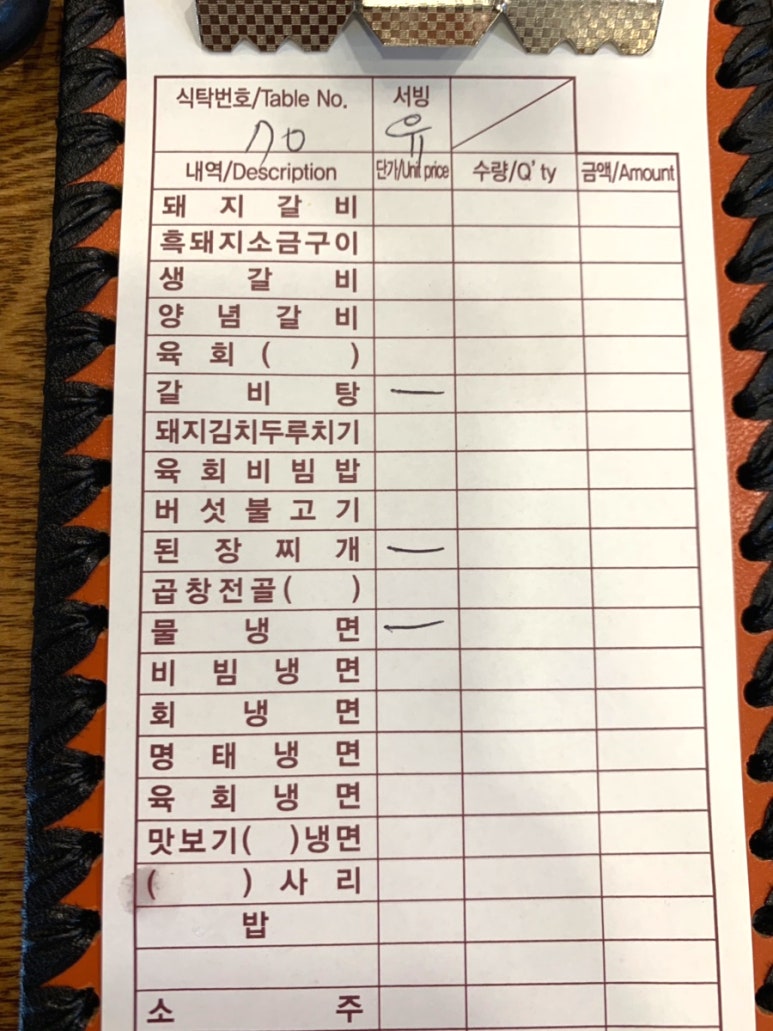 식탁번호/Table No. 서빙
70 유
내역/Description 단가/Unit price 수량/Q'ty 금액/Amount
돼지갈비
흑돼지소금구이
생갈비
양념갈비
육회( )
갈비탕 —
돼지김치두루치기
육회비빔밥
버섯불고기
된장찌개 —
곱창전골( )
물냉면 —
비빔냉면
회냉면
명태냉면
육회냉면
맛보기( )냉면
( )사리
밥
소주